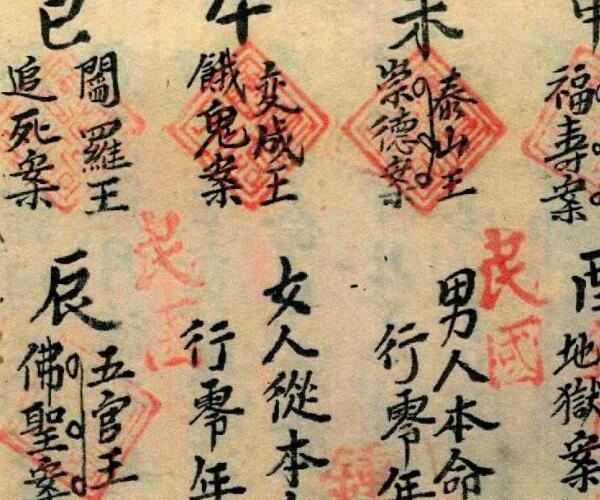 申
福壽案
酉
地獄案
未
泰山王
崇德案
民國
男人本命
行零年
午
变成王
餓鬼案
女人從本
行零年
民
巳
閻羅王
追死案
辰
五官王
佛聖案